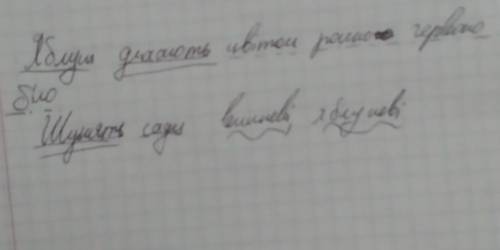 Яблуні дихають цвітом рожево червоно
біло
Шумлять сади вишневі яблуневі